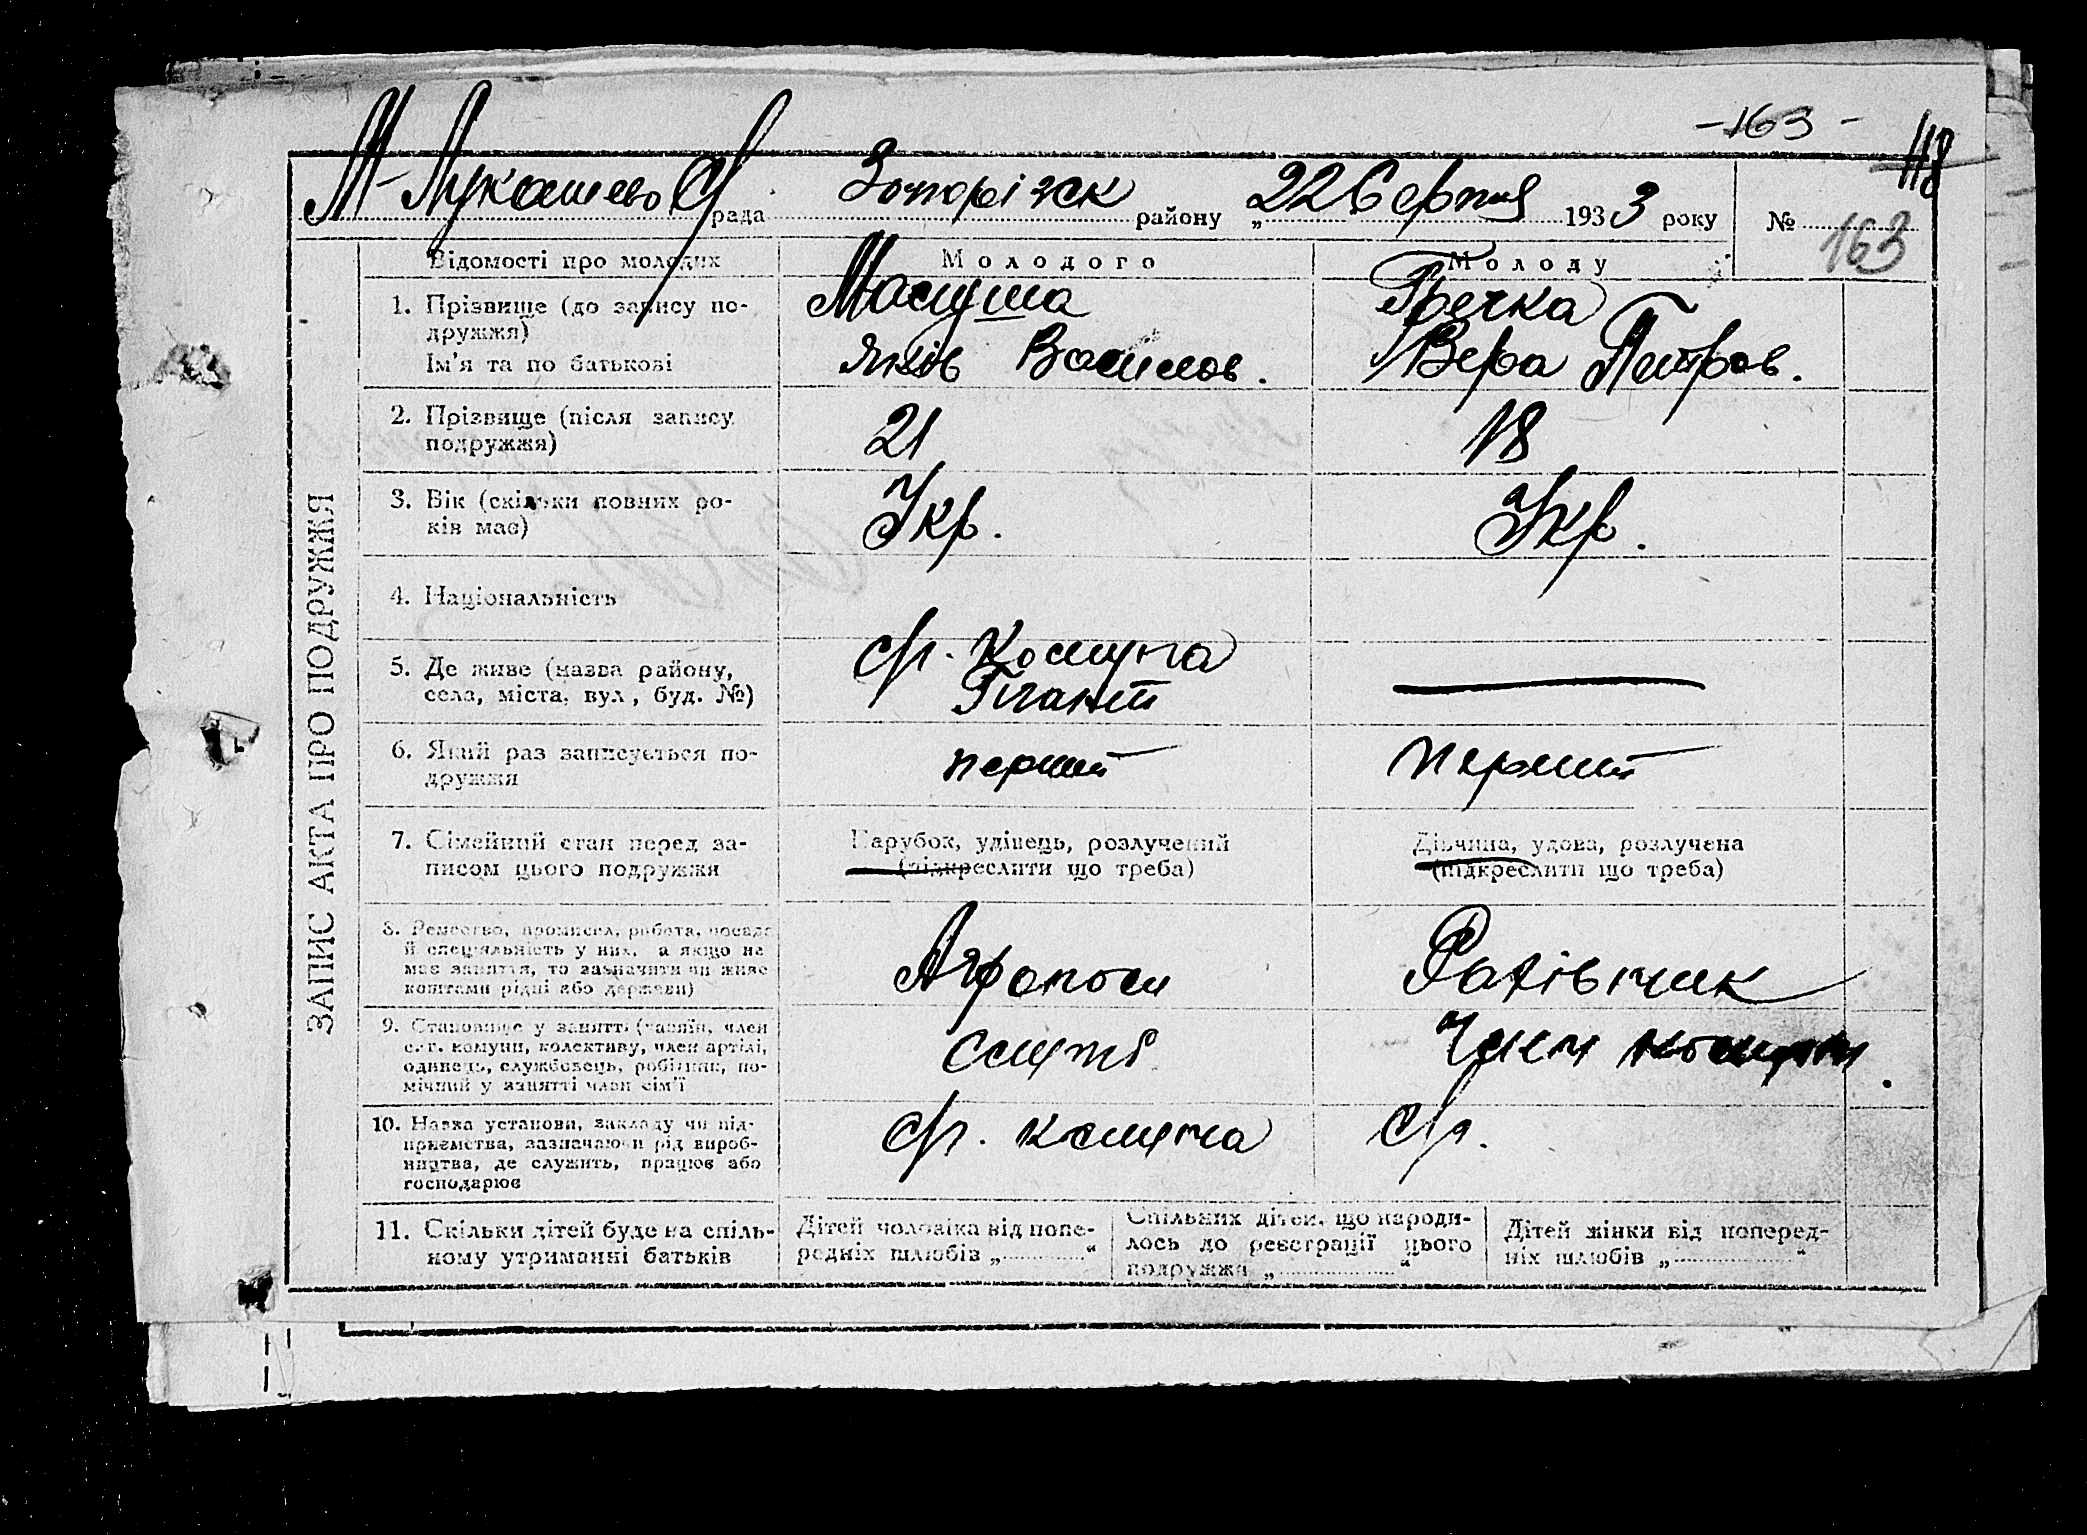 -163-
118
М-Лукашево С/ рада Запоріжск району „22 Серпня 1933 року № 163
Відомості про молодих
Молодого
Молоду
1. Прізвище (до запису по-
дружжя)
Ім'я та по батькові
Яків Васильов.
Гречка
Вера Петров.
2. Прізвище (після запису
подружжя)
21
18
3. Вік (скільки повних ро-
ків має)
Укр.
Укр.
4. Національність
5. Де живе (назва району,
села, міста, вул., буд. №)
с/г. Комуна
Гігант
6. Який раз записується по-
дружжя
перший
перший
7. Сімейний стан перед за-
писом цього подружжя
Парубок, удівець, розлучений
(підкреслити що треба)
Дівчина, удова, розлучена
(підкреслити що треба)
8. Ремество, промисел, робота, посада
й спеціяльність у них, а якщо не
має заняття, то зазначити чи живе
коштами рідні або держави)
Агроном
Рахівник
9. Становище у занятті (хазяїн, член
с.-г. комуни, колективу, член артілі,
одинець, службовець, робітник, по-
мічний у занятті член сім'ї
Член комуни.
10. Назва установи, закладу чи під-
приємства, зазначаючи рід вироб-
ництва, де служить, працює або
господарює
с/г. комуна
с/г.
11. Скільки дітей буде на спіль-
ному утриманні батьків
Дітей чоловіка від попе-
редніх шлюбів „ “
Спільних дітей, що народи-
лось до реєстрації цього
подружжя „ “
Дітей жінки від поперед-
ніх шлюбів „ “
ЗАПИС АКТА ПРО ПОДРУЖЖЯ